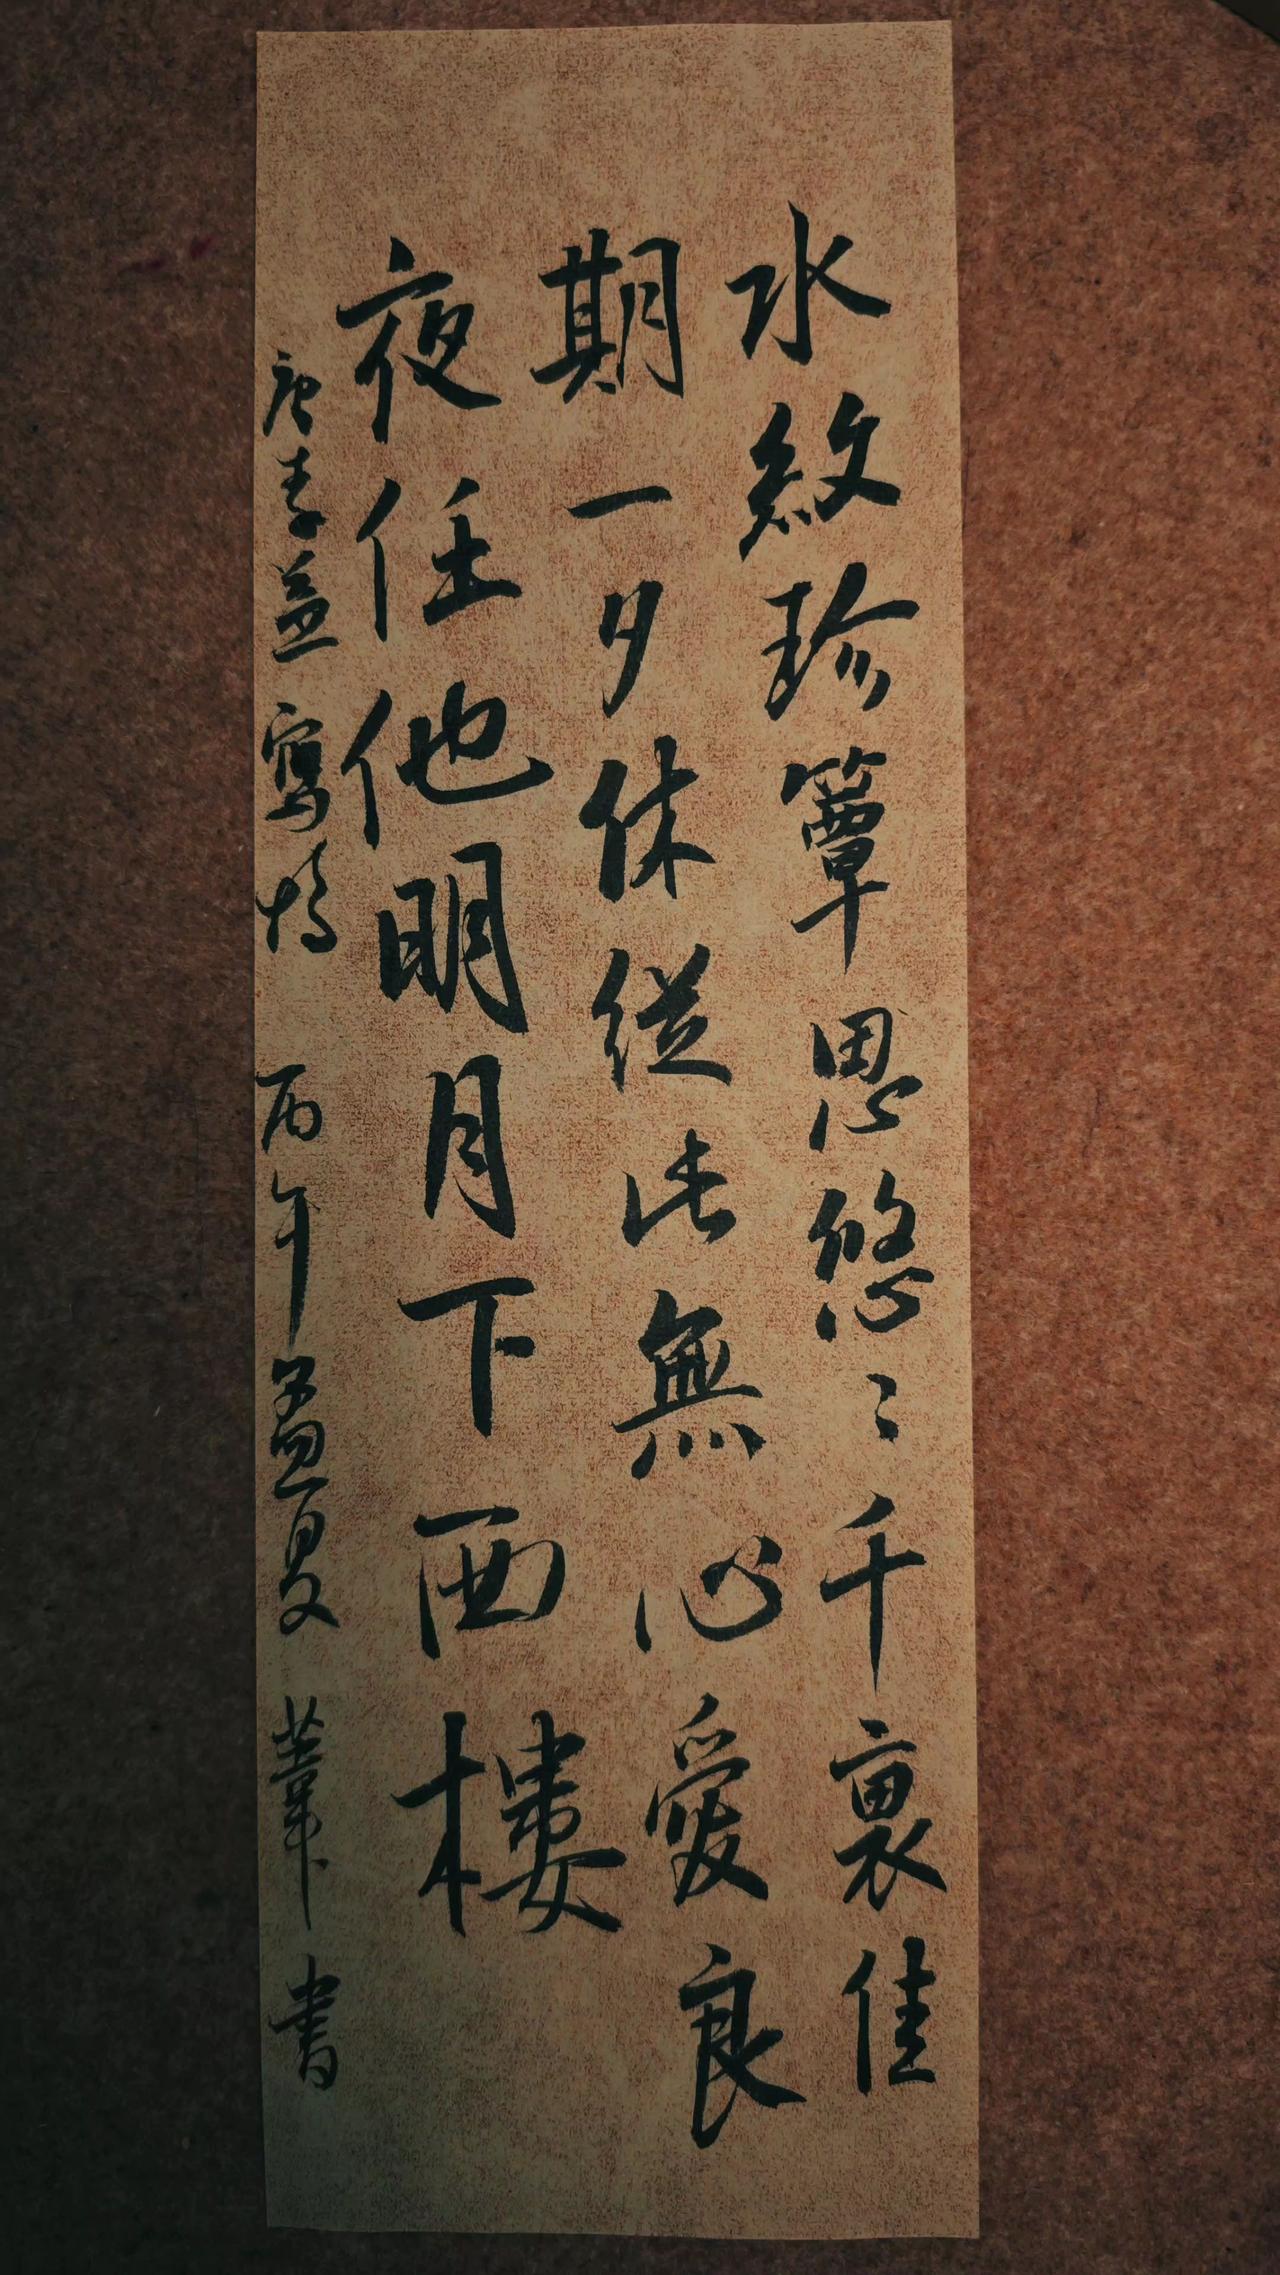 水紋珍簟思悠〻千裏佳
期一夕休從此無心愛良
夜任他明月下西樓
唐李益寫情 丙午孟夏 葦書